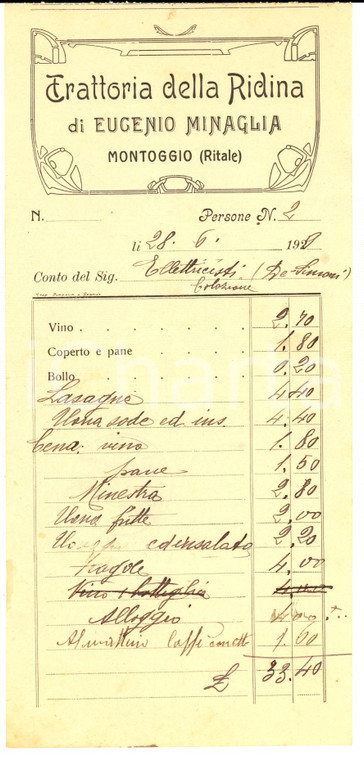 Trattoria della Ridina
di EUGENIO MINAGLIA
MONTOGGIO (Ritale)
N. Persone N. 2
li 28. 6. 1928
Conto del Sig. Ellettricisti (De Simoni)
Colazione
Vino 2.70
Coperto e pane 1.80
Bollo 0.20
Lasagne 4.40
Uova sode ed ins. 4.40
Cena: vino 1.80
pane 1.50
Minestra 2.80
Uova fritte 2.00
ed insalata 2.20
Fragole 4.00
Vino 1 bottiglia
Alloggio
Al mattino caffè 1.60
£ 33.40